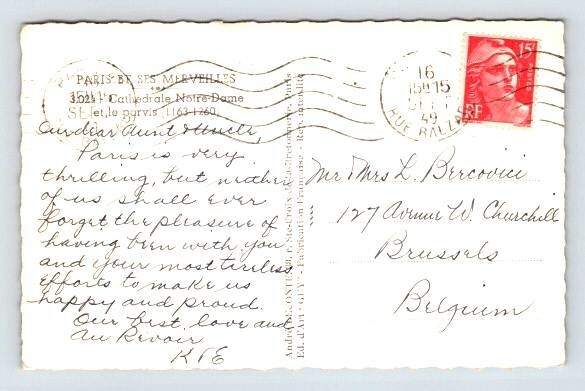 PARIS ET SES MERVEILLES
Cathédrale Notre-Dame
et le parvis (1163-1260)
Our dear Aunt & Uncle,
Paris is very
thrilling, but neither
of us shall ever
forget the pleasure of
having been with you
and your most tireless
efforts to make us
happy and proud.
Our best love and
Au Revoir
K & E
Ed. d'Art "GUY" - Fabrication Française - Rep. interdite
16
15H15
49
RUE BALZAC
15F
RF
Mr Mrs L. Bercovici
127 Avenue W. Churchill
Brussels
Belgium